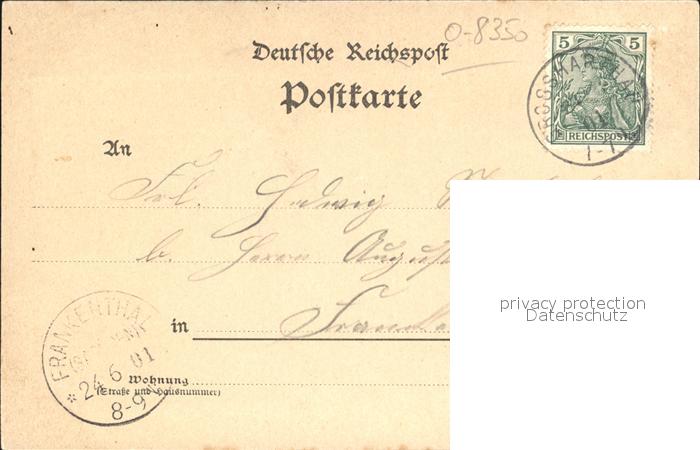 O-8350
Deutsche Reichspost
Postkarte
5 5
REICHSPOST
1-7
An
Frl. Hedwig
b. Herrn August
in Franke
FRANKENTHAL
24 6 01
8-9
Wohnung
(Straße und Hausnummer)
privacy protection
Datenschutz